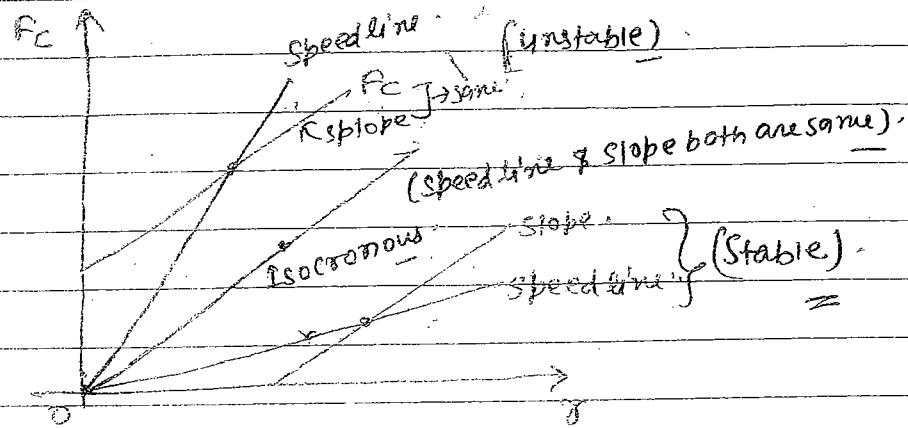 Fc
Speed line.
(Unstable).
Fc ]→same
Ksplope
(Speed line & Slope both are same).
Isocronous.
Slope.
Speed line
(Stable).
O
r